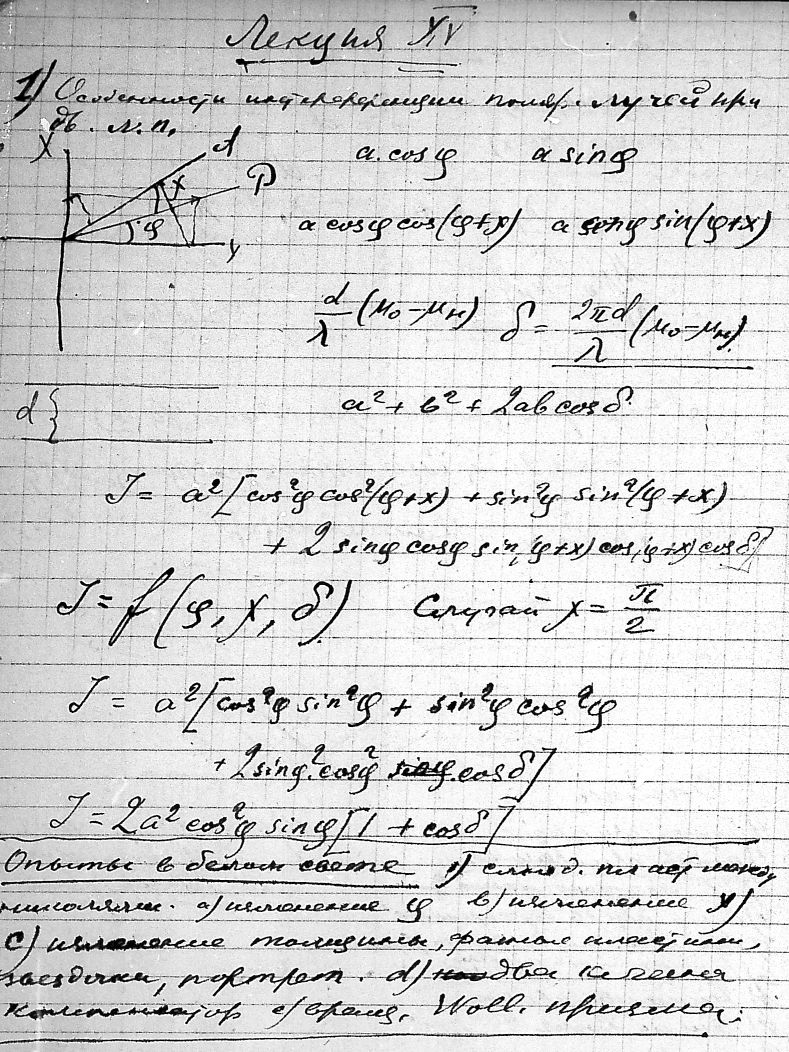 Лекция XV
1) Особенности интерференции поляр. лучей при
дв. л. п.
X
A
x
P
φ
y
a. cosφ a sinφ
a cosφ cos(φ+x) a sinφ sin(φ+x)
d/λ (μ₀−μₙ) δ = 2πd/λ (μ₀−μₙ)
d {
a² + b² + 2ab cosδ
J = a² [cos²φ cos²(φ+x) + sin²φ sin²(φ+x)
+ 2 sinφ cosφ sin(φ+x) cos(φ+x) cosδ]
J = f (φ, x, δ) Случай x = π/2
J = a² [cos²φ sin²φ + sin²φ cos²φ
+ 2sinφ² cosφ² cosδ]
J = 2a² cos²φ sin²φ [1 + cosδ]
Опыты в белом свете 1) слюд. пласт между
николями. a) изменение φ b) изменение x)
c) изменение толщины, разные пластинки,
звездочки, портрет. d) два
компенсатор e) вращ. Woll. призма.